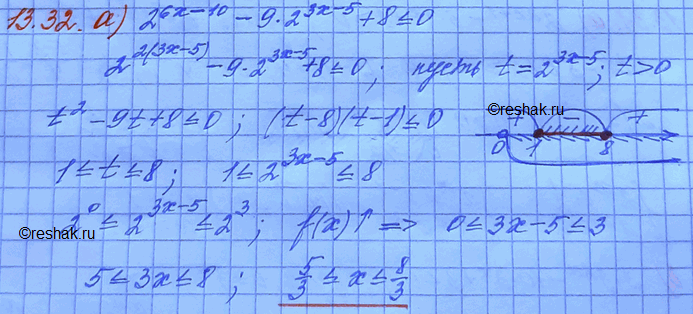 13.32. а) 2^{6x-10} - 9·2^{3x-5} + 8 ≤ 0
2^{2(3x-5)} - 9·2^{3x-5} + 8 ≤ 0 ; пусть t = 2^{3x-5} ; t > 0
t² - 9t + 8 ≤ 0 ; (t-8)(t-1) ≤ 0
©reshak.ru
+ - +
0 1 8
1 ≤ t ≤ 8 ; 1 ≤ 2^{3x-5} ≤ 8
2^0 ≤ 2^{3x-5} ≤ 2^3 ; f(x)↑ => 0 ≤ 3x-5 ≤ 3
©reshak.ru
5 ≤ 3x ≤ 8 ; 5/3 ≤ x ≤ 8/3